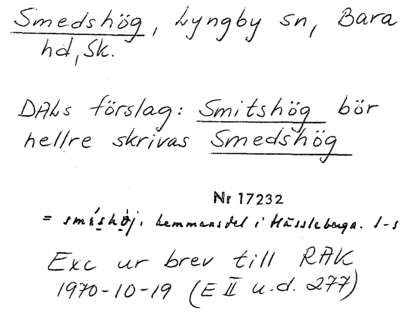 Smedshög, Lyngby sn, Bara
hd, Sk.
DALs förslag: Smitshög bör
hellre skrivas Smedshög
Nr 17232
= hemmansdel i Hässleberga.
Exc ur brev till RAK
1970-10-19 (E II u.d. 277)